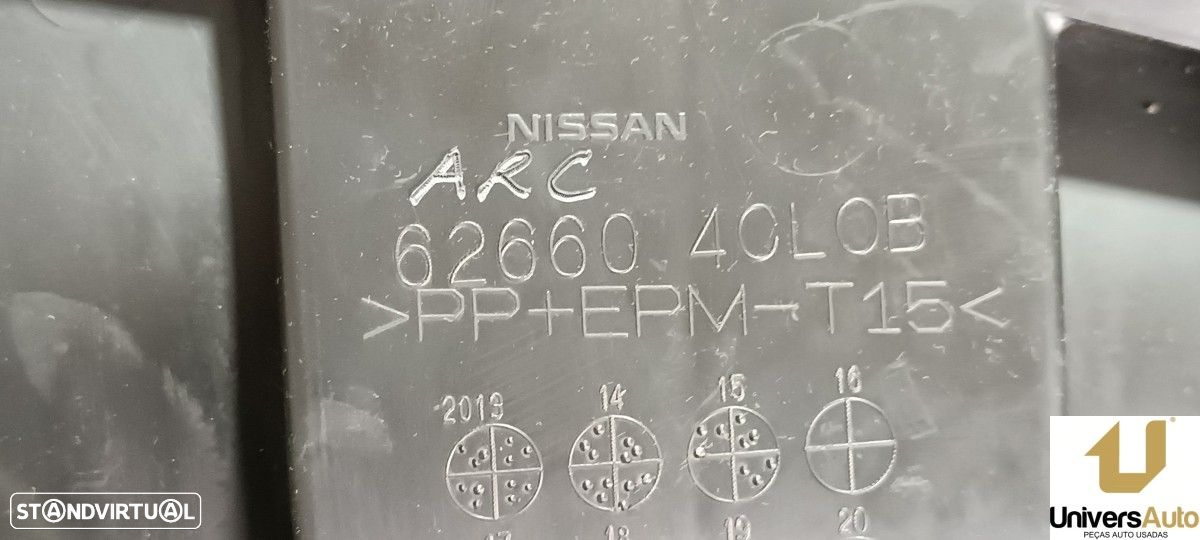 NISSAN
ARC
62660 40L0B
>PP+EPM-T15<
2013 14 15 16
17 18 19 20
STANDVIRTUAL
UniversAuto
PEÇAS AUTO USADAS